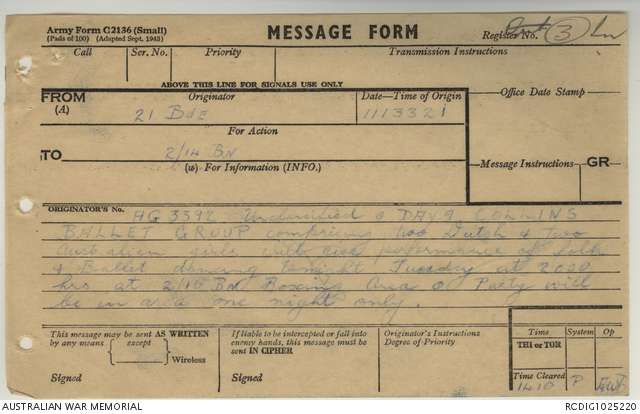 Army Form C2136 (Small)
(Pads of 100) (Adopted Sept. 1943)
MESSAGE FORM
Register No. 3
Call
Ser. No.
Priority
Transmission Instructions
ABOVE THIS LINE FOR SIGNALS USE ONLY
FROM
(A)
Originator
21 Bde
Date—Time of Origin
111332
Office Date Stamp
For Action
TO
2/14 BN
(w) For Information (INFO.)
Message Instructions
GR
ORIGINATOR'S No.
AG 3392 Unclassified o COLLINS
BALLET GROUP comprising two Dutch & two
Australian girls will give performance of folk
& Ballet dancing tonight Tuesday at 2000
hrs at BN Boxing Area o Party will
be in area one night only.
This message may be sent AS WRITTEN
by any means
except
Wireless
Signed
If liable to be intercepted or fall into
enemy hands, this message must be
sent IN CIPHER
Signed
Originator's Instructions
Degree of Priority
Time
System
Op
THI or TOR
Time Cleared
1410
P
AUSTRALIAN WAR MEMORIAL
RCDIG1025220